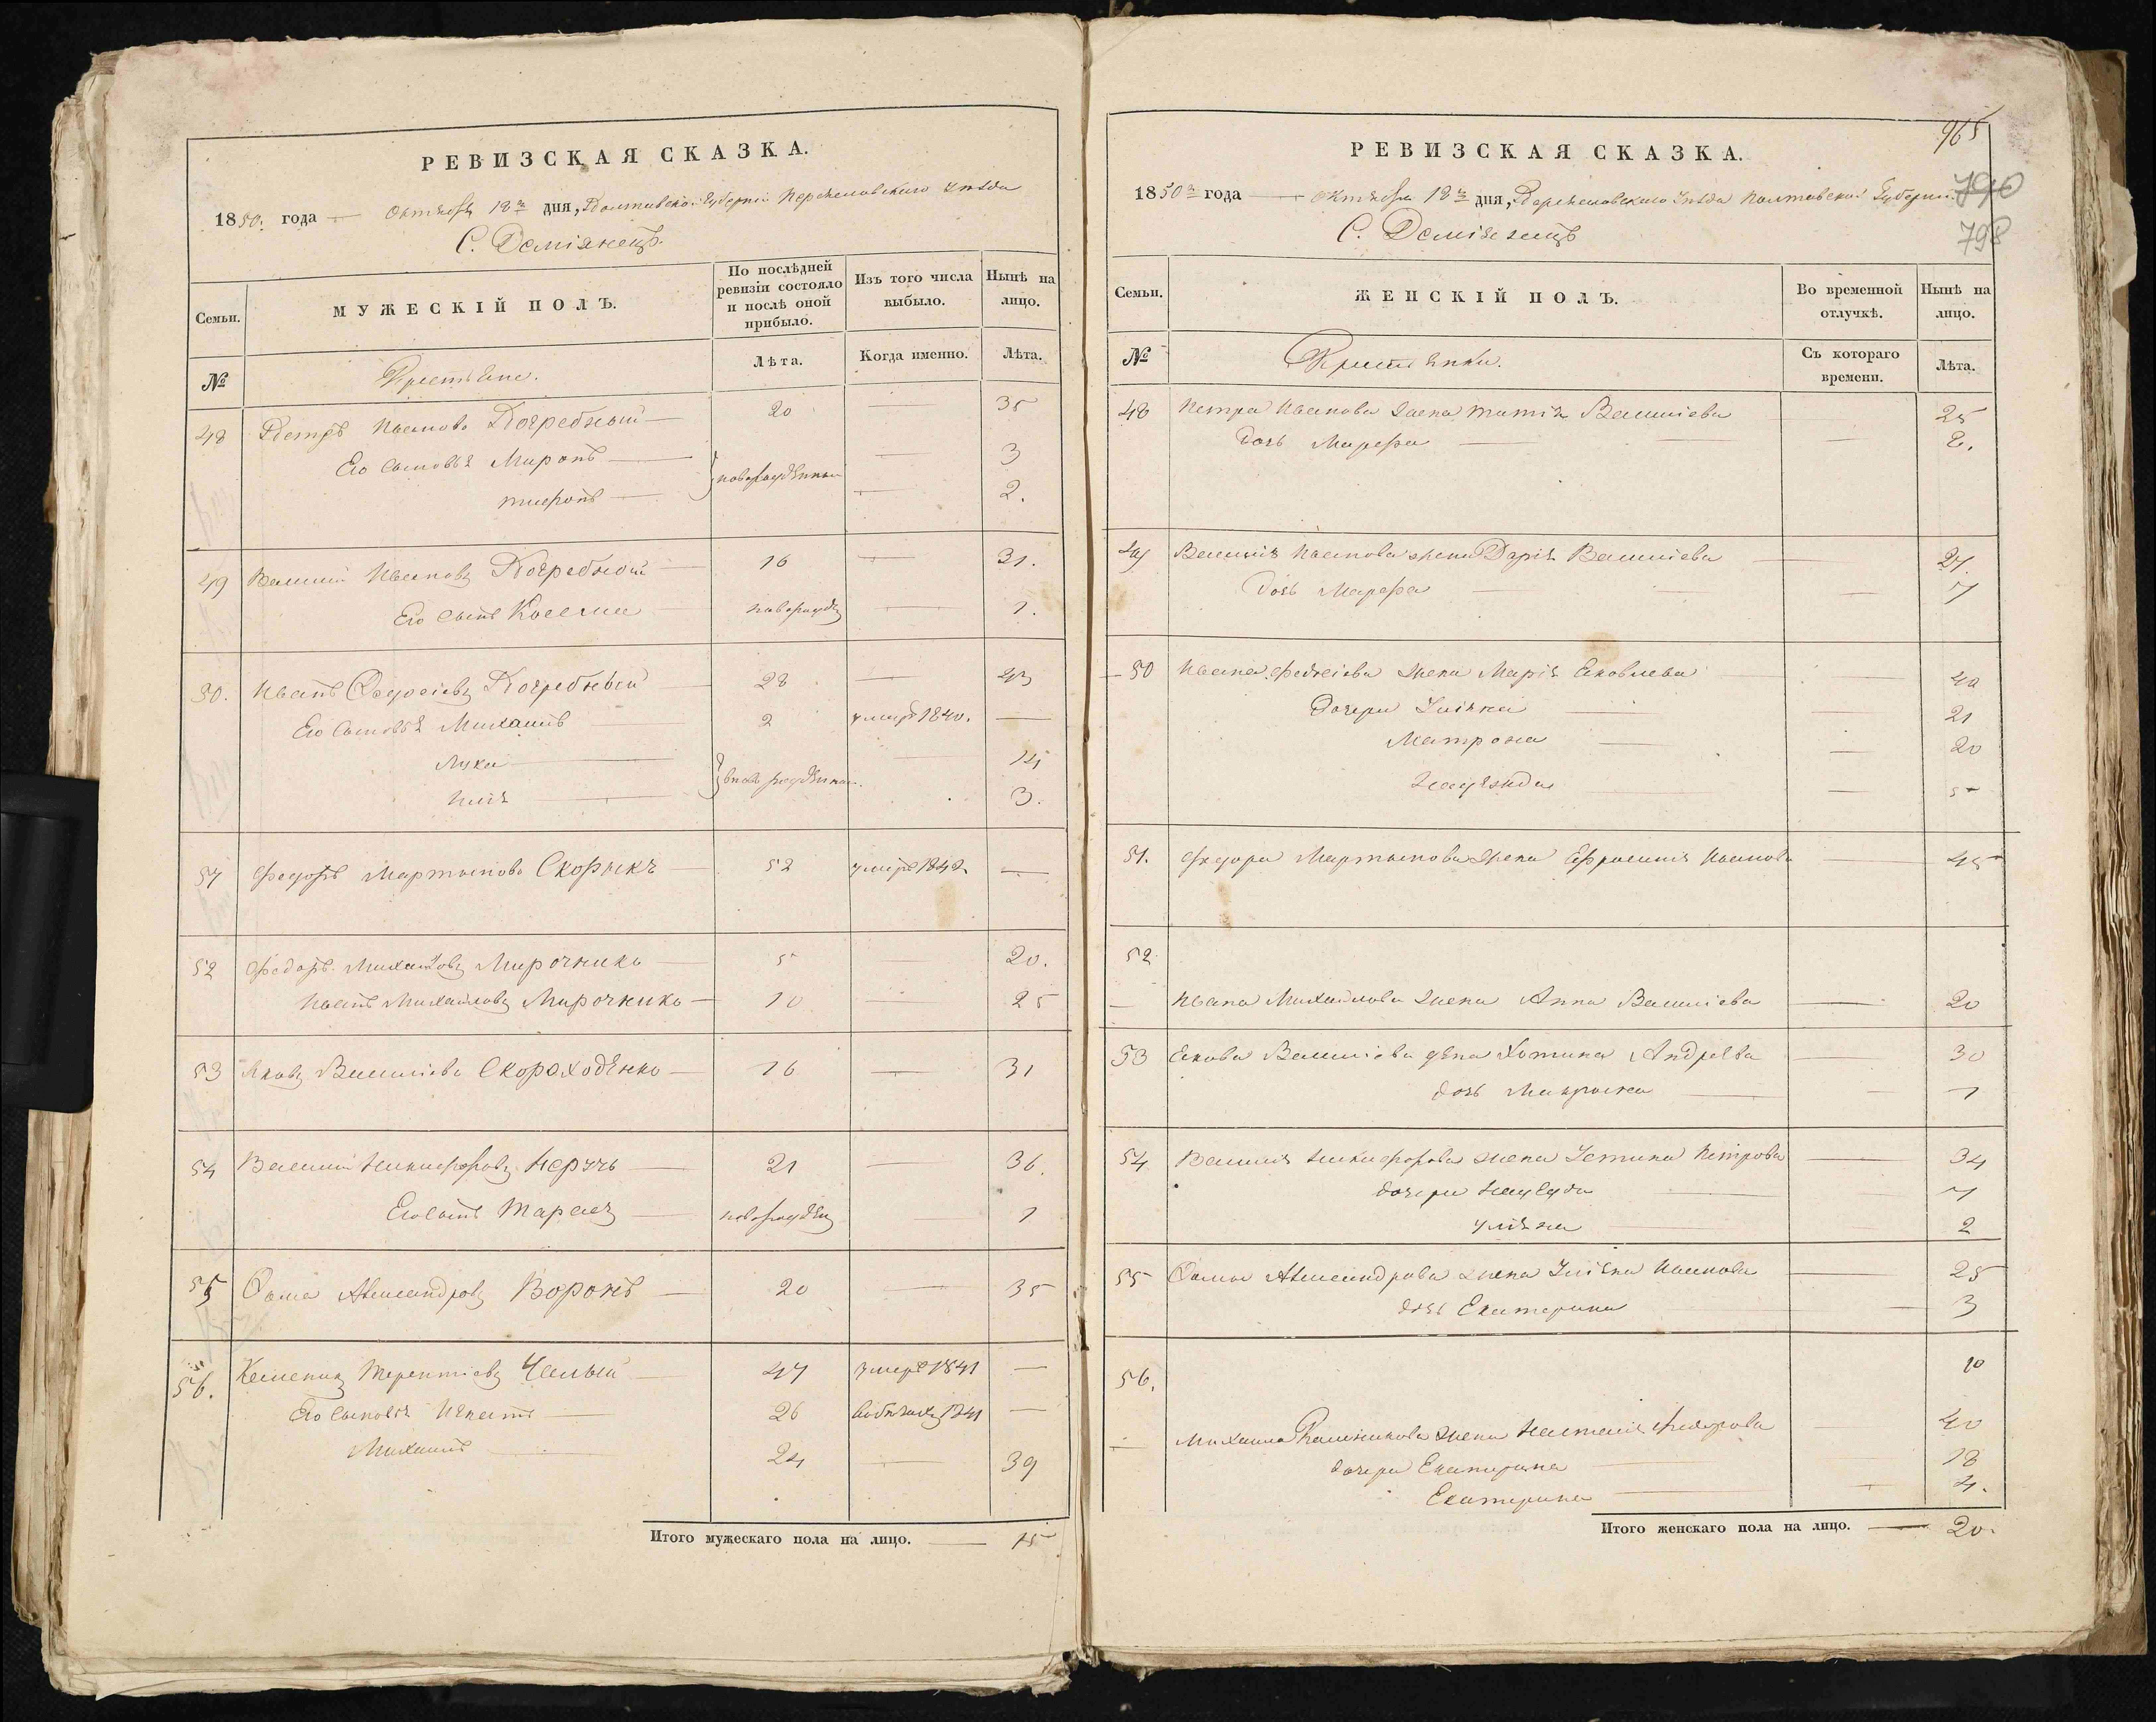 РЕВИЗСКАЯ СКАЗКА.
1850. года — Октября 18 дня, Полтавской Губернии Переяславского Уезда
С. Демянецъ.
Семьи.
МУЖЕСКІЙ ПОЛЪ.
По послѣдней ревизіи состояло и послѣ оной прибыло.
Изъ того числа выбыло.
Нынѣ на лицо.
№
Крестьяне.
Лѣта.
Когда именно.
Лѣта.
48 Петръ Ивановъ Погребный — 20 — 35
Его Сыновья Миронъ — новорожденныи — 3
Тихонъ — — 2.
49 Василій Ивановъ Погребной 16 — 31.
Его Сынъ Косьма новорожд — 1.
50. Иванъ Федосіевъ Погребный 28 — 43
Его Сыновья Михаилъ 2 умеръ 1840. —
Лука — внов рожденныи 14
Илія — 3.
51 Федоръ Мартыновъ Скорыкъ — 52 умеръ 1848 —
52 Федоръ Михайловъ Мирочникъ — 5 — 20.
Иванъ Михайловъ Мирочникъ — 10 — 25
53 Яковъ Василіевъ Скороходѣнко — 16 — 31
54 Василій Никифоровъ Неручь — 21 — 36.
Его Сынъ Тарасъ — новорожден — 1
55 Фома Александровъ Воронъ — 20 — 35
56. Терентіевъ Чалый — 47 умеръ 1841 —
Его Сыновья Игнатъ — 26 1841 —
Михаилъ — 24 — 39
Итого мужескаго пола на лицо. — 15
965
РЕВИЗСКАЯ СКАЗКА.
790
1850 года — Октября 18 дня, Переяславского Уезда Полтавской Губернии.
С. Демянецъ
798
Семьи.
ЖЕНСКІЙ ПОЛЪ.
Во временной отлучкѣ.
Нынѣ на лицо.
№
Крестьянки.
Съ котораго времени.
Лѣта.
48 Петра Иванова жена Василіева 25
дочь Марфа — 8.
49 Василія Иванова жена Дарія Василіева — 27.
Дочь Марфа — 7
50 Ивана Федосіева жена Марія Яковлева — 40
Дочери Уліяна — 21
Матрона — 20
— 5
51. Федора Мартынова жена Ефросинія Иванова — 45
52
— Ивана Михайлова жена Анна Василіева — 20
53 Якова Василіева жена Андреева — 30
дочь — 1
54 Василія Никифорова жена Устина Петрова — 34
дочери — 7
Уліяна — 2
55 Фомы Александрова жена Уліяна Иванова — 25
дочь Екатерина — 3
56. 10
— Михаила жена Наталія Федорова — 40
дочери Екатерина — 18
Екатерина — 4.
Итого женскаго пола на лицо. — 20.